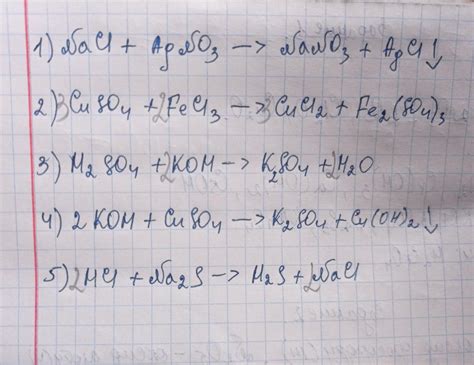 1) NaCl + AgNO₃ → NaNO₃ + AgCl↓
2) 3CuSO₄ + 2FeCl₃ → 3CuCl₂ + Fe₂(SO₄)₃
3) H₂SO₄ + 2KOH → K₂SO₄ + 2H₂O
4) 2KOH + CuSO₄ → K₂SO₄ + Cu(OH)₂↓
5) 2HCl + Na₂S → H₂S + 2NaCl